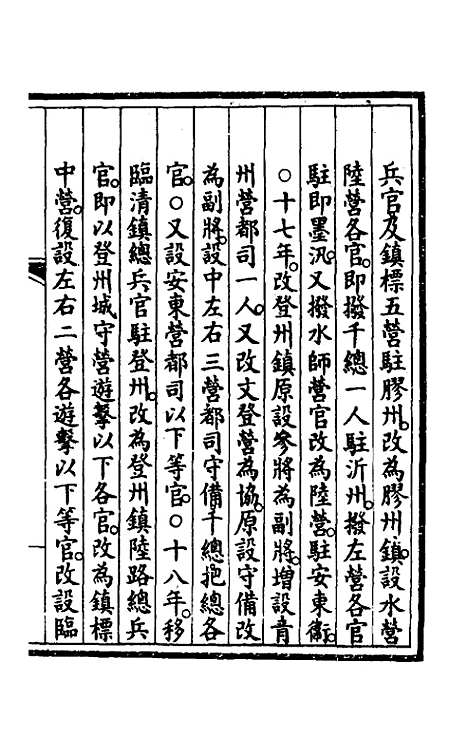 兵官及鎮標五營駐膠州。改為膠州鎮。設水營
陸營各官。即撥千總一人駐沂州。撥左營各官
駐即墨汛。又撥水師營官改為陸營。駐安東衛。
○十七年。改登州鎮原設參將為副將。增設青
州營都司一人。又改文登營為協。原設守備改
為副將。設中左右三營都司守備千總把總各
官。○又設安東營都司以下等官。○十八年。移
臨清鎮總兵官駐登州。改為登州鎮陸路總兵
官。即以登州城守營遊擊以下各官。改為鎮標
中營。復設左右二營各遊擊以下等官。改設臨